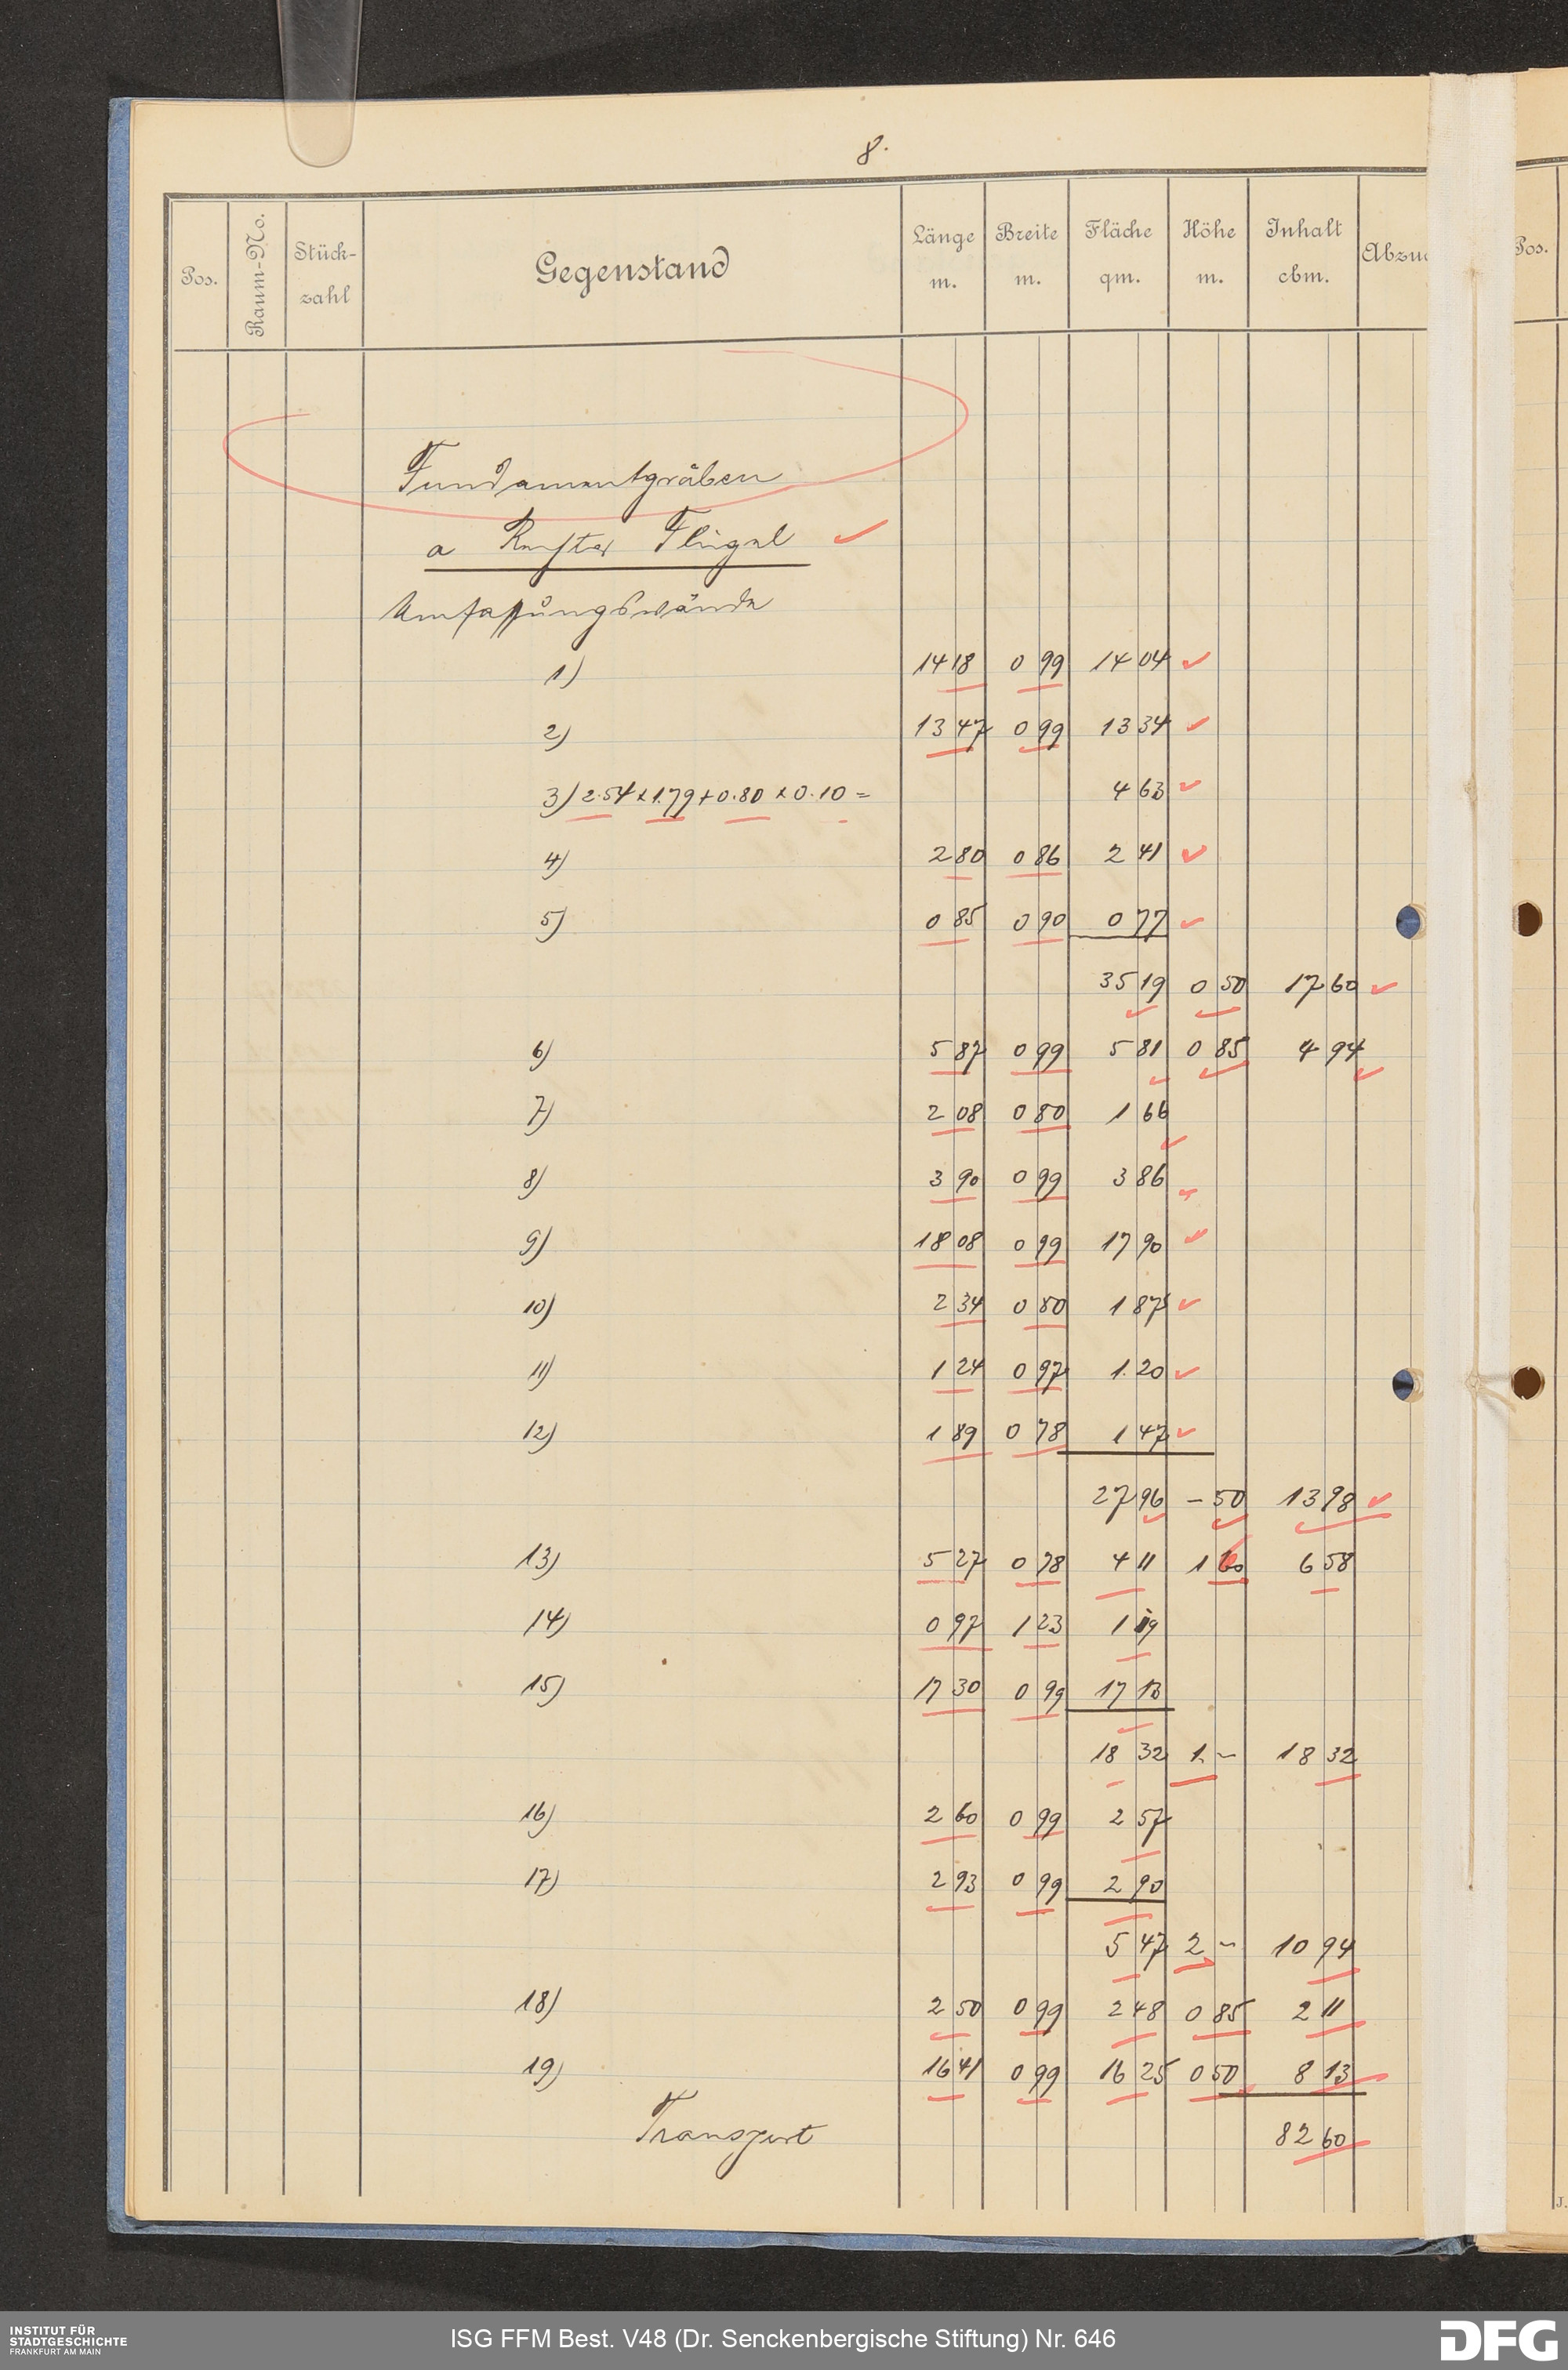 8.
Pos. Raum-No. Stück-zahl Gegenstand Länge m. Breite m. Fläche qm. Höhe m. Inhalt cbm. Abzu Pos.
Fundamentgräben
a Rechter Flügel
Umfassungswände
1) 14 18 0 99 14 04
2) 13 47 0 99 13 34
3) 2.54 x 1.79 + 0.80 x 0.10 = 4 63
4) 2 80 0 86 2 41
5) 0 85 0 90 0 77
35 19 0 50 17 60
6) 5 87 0 99 5 81 0 85 4 94
7) 2 08 0 80 1 66
8) 3 90 0 99 3 86
9) 18 08 0 99 17 90
10) 2 34 0 80 1 87
11) 1 24 0 97 1.20
12) 1 89 0 78 1 47
27 96 – 50 13 98
13) 5 27 0 78 4 11 1 60 6 58
14) 0 97 1 23 1 19
15) 17 30 0 99 17 13
18 32 1. – 18 32
16) 2 60 0 99 2 57
17) 2 93 0 99 2 90
5 47 2 – 10 94
18) 2 50 0 99 2 48 0 85 2 11
19) 16 41 0 99 16 25 0 50 8 13
Transport 82 60
J.
INSTITUT FÜR
STADTGESCHICHTE
FRANKFURT AM MAIN
ISG FFM Best. V48 (Dr. Senckenbergische Stiftung) Nr. 646
DFG